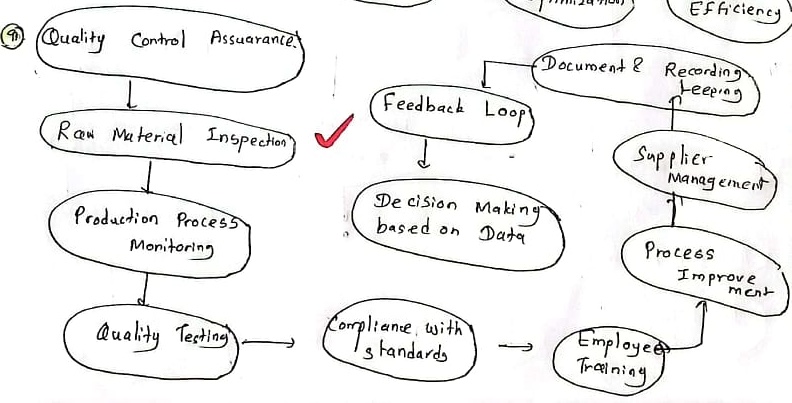 Efficiency
Quality Control Assuarance.
Raw Material Inspection
Production Process
Monitoring
Quality Testing
Compliance with
standards
Employee
Training
Process
Improve
ment
Supplier
Management
Document & Recording
keeping
Feedback Loop
Decision Making
based on Data